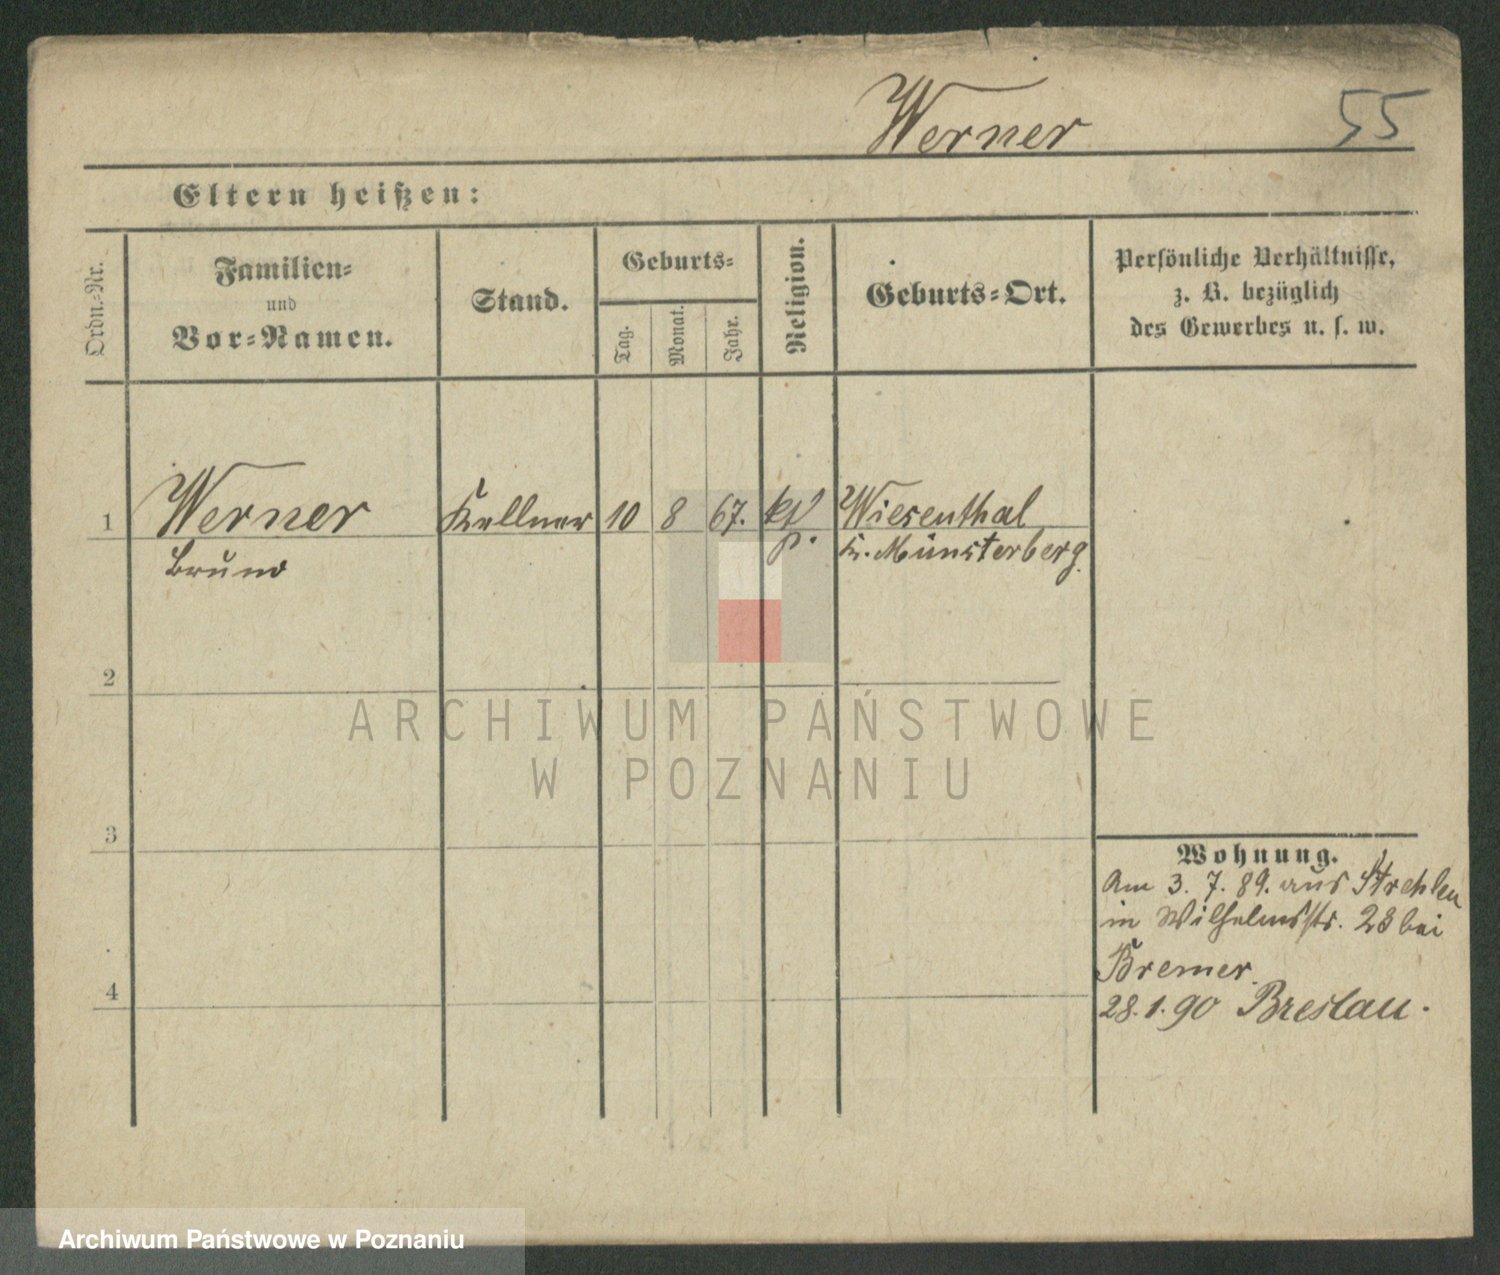 Werner 55
Eltern heißen:
Ordn.-Nr.
Familien-
und
Vor-Namen.
Stand.
Geburts-
Tag.
Monat.
Jahr.
Religion.
Geburts-Ort.
Persönliche Verhältnisse,
z. B. bezüglich
des Gewerbes u. s. w.
1 Werner Kellner 10 8 67. Wiesenthal
Bruno Kr. Münsterberg
2
ARCHIWUM PAŃSTWOWE
W POZNANIU
3
Wohnung.
Am 3. 7. 89. aus Strehlen
in Wilhelmsstr. 28 bei
Bremer.
4
28. 1. 90 Breslau.
Archiwum Państwowe w Poznaniu